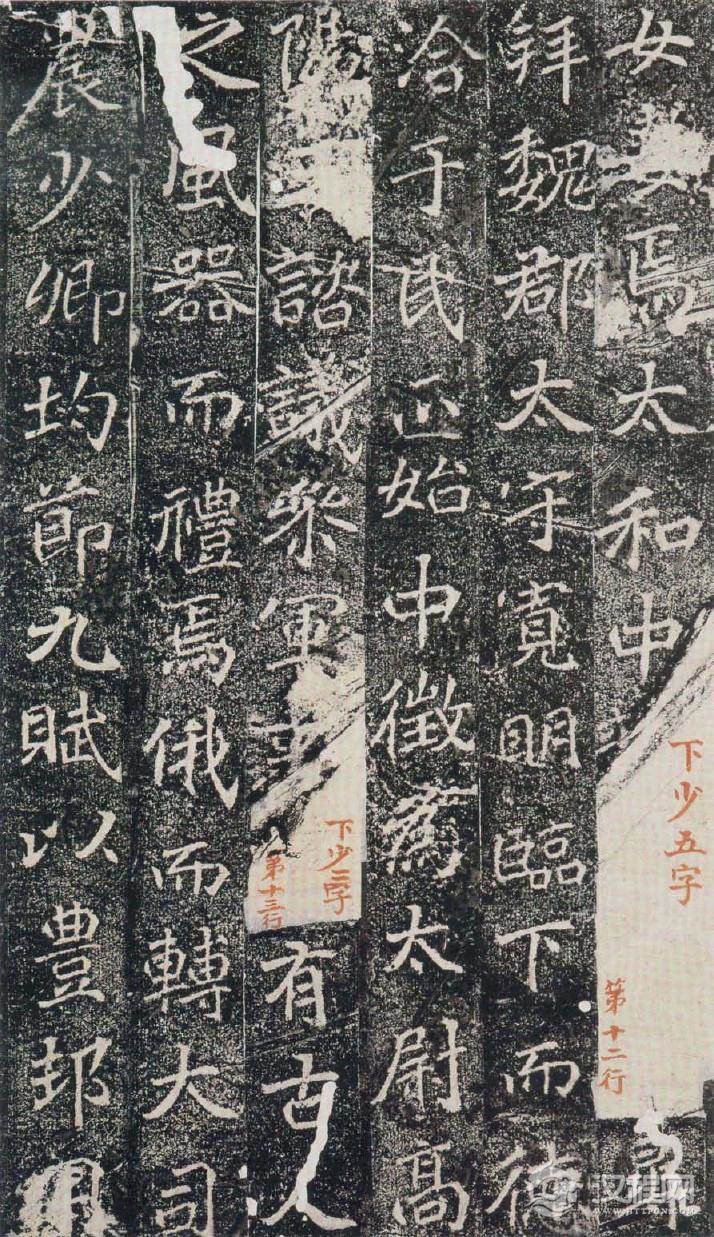 女焉太和中
下少五字
第十二行
拜魏郡太守寬明臨下而德
洽于民正始中徵爲太尉高
陽王諮議叅軍事
下少三字
第十三行
有古人
之風器而禮焉俄而轉大司
農少卿均節九賦以豊邦用
汉程网
WWW.HTTPCN.COM